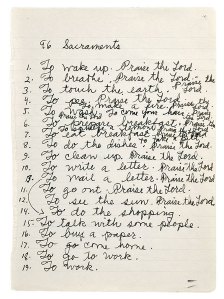 96 Sacraments
1. To wake up. Praise the Lord.
2. To breathe. Praise the Lord.
3. To touch the earth. Praise the Lord.
4. To pee. Praise the Lord.
To make fire. Praise the Lord.
5. To wash. To comb your hair. Praise the Lord.
6. To prepare breakfast. Praise the Lord.
7. To eat breakfast. Praise the Lord.
8. To do the dishes. Praise the Lord.
9. To clean up. Praise the Lord.
10. To write a letter. Praise the Lord.
To mail a letter. Praise the Lord.
11. To go out. Praise the Lord.
12. To see the sun. Praise the Lord.
14. To do the shopping.
15. To talk with some people.
16. To buy a paper.
17. To go come home.
18. To go to work.
19. To work.